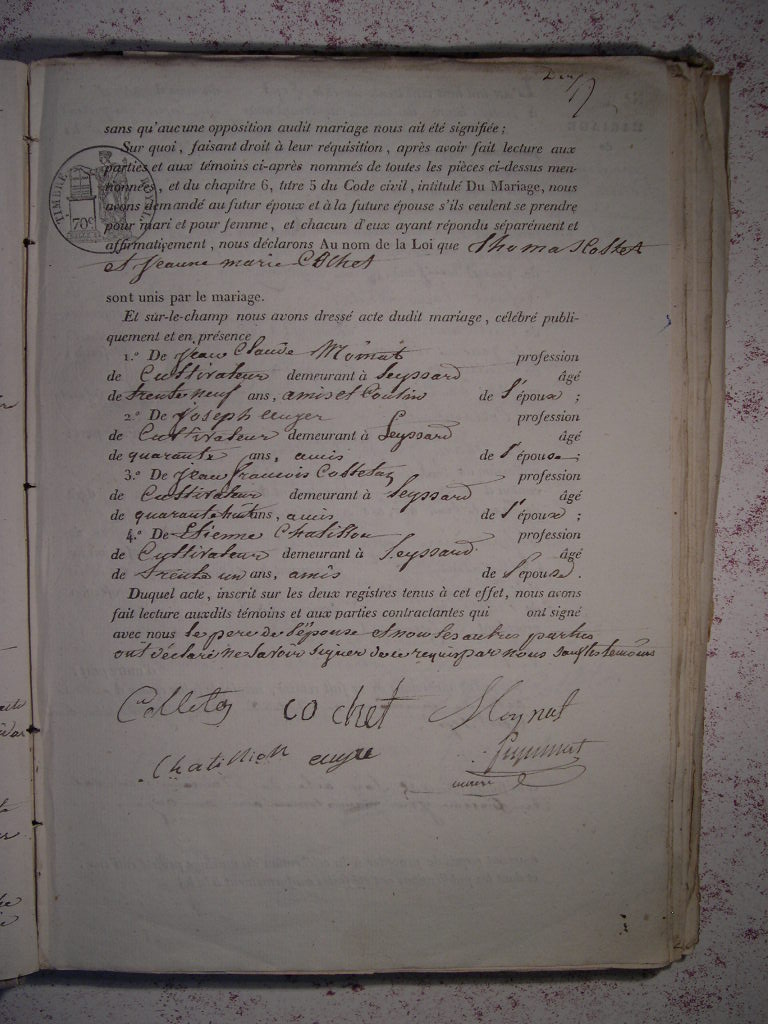 Deux
sans qu'aucune opposition audit mariage nous ait été signifiée ;
Sur quoi, faisant droit à leur réquisition, après avoir fait lecture aux
parties et aux témoins ci-après nommés de toutes les pièces ci-dessus men-
tionnées, et du chapitre 6, titre 5 du Code civil, intitulé Du Mariage, nous
avons demandé au futur époux et à la future épouse s'ils veulent se prendre
pour mari et pour femme, et chacun d'eux ayant répondu séparément et
affirmativement, nous déclarons Au nom de la Loi que Thomas
et jeanne marie Cochet
TIMBRE ROYAL
70c
sont unis par le mariage.
Et sur-le-champ nous avons dressé acte dudit mariage, célébré publi-
quement et en présence
1.° De jean Claude Moinat profession
de Cultivateur demeurant à Leyssard âgé
de trente neuf ans, amis et Cousin de l'époux ;
2.° De joseph auger profession
de Cultivateur demeurant à Leyssard âgé
de quarante ans, amis de l'épouse ;
3.° De jean francois Colletaz profession
de Cultivateur demeurant à Leyssard âgé
de quarante huit ans, amis de l'époux ;
4.° De Etienne Chatillon profession
de Cultivateur demeurant à Leyssard âgé
de trente un ans, amis de l'épouse.
Duquel acte, inscrit sur les deux registres tenus à cet effet, nous avons
fait lecture auxdits témoins et aux parties contractantes qui ont signé
avec nous le pere de l'épouse et non les autres parties
ont déclaré ne savoir signer de ce requis par nous sauf les temoins
Colletaz cochet Moynat
Chatillion auge
maire